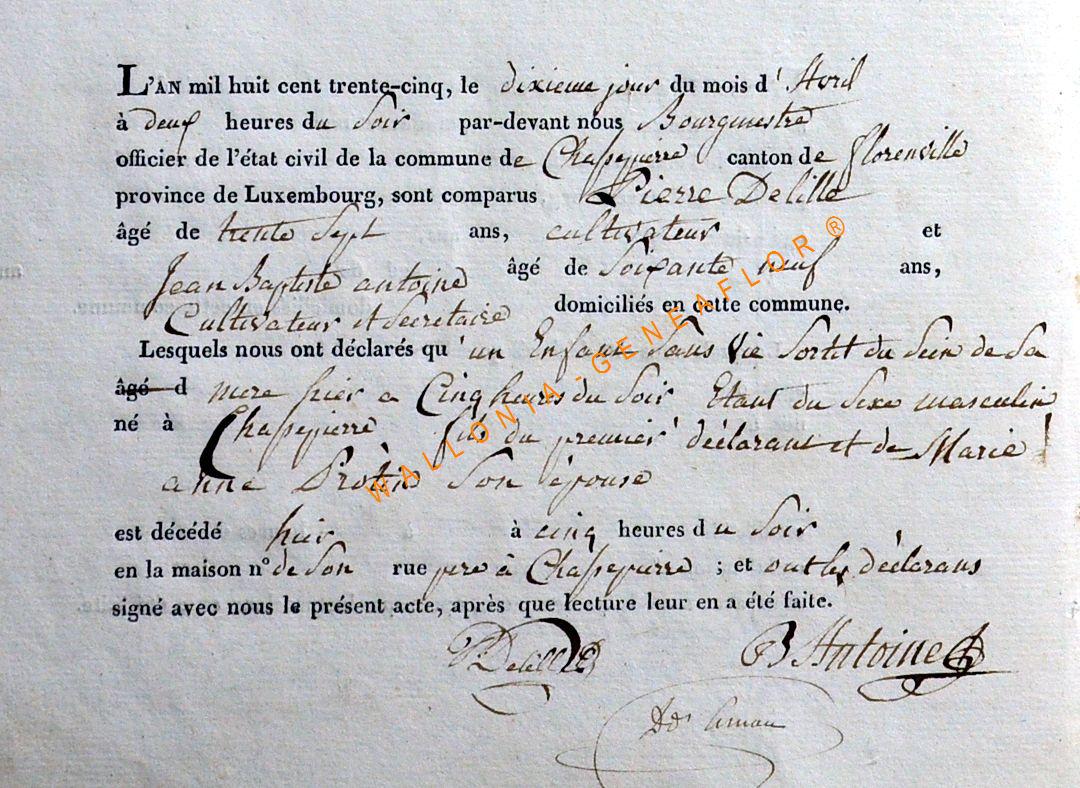 L'AN mil huit cent trente-cinq, le dixieme jour du mois d'Avril
à deux heures du Soir par-devant nous Bourgmestre
officier de l'état civil de la commune de Chassepierre canton de florenville
province de Luxembourg, sont comparus Pierre Delille
âgé de trente Sept ans, cultivateur et
Jean Baptiste antoine âgé de Soixante neuf ans,
Cultivateur et Secretaire domiciliés en cette commune.
Lesquels nous ont déclarés qu'un Enfant Sans Vie Sortit du Sein de Sa
âgé d mere hier a Cinq heures du Soir Etant du Sexe masculin
né à Chassepierre fils du premier déclarant et de Marie
anne Protin Son épouse
est décédé hier à cinq heures du Soir
en la maison n° de Son rue pere à Chassepierre ; et ont les déclarans
signé avec nous le présent acte, après que lecture leur en a été faite.
P Delille
JB Antoine
WALLONIA-GENEAFLOR ®